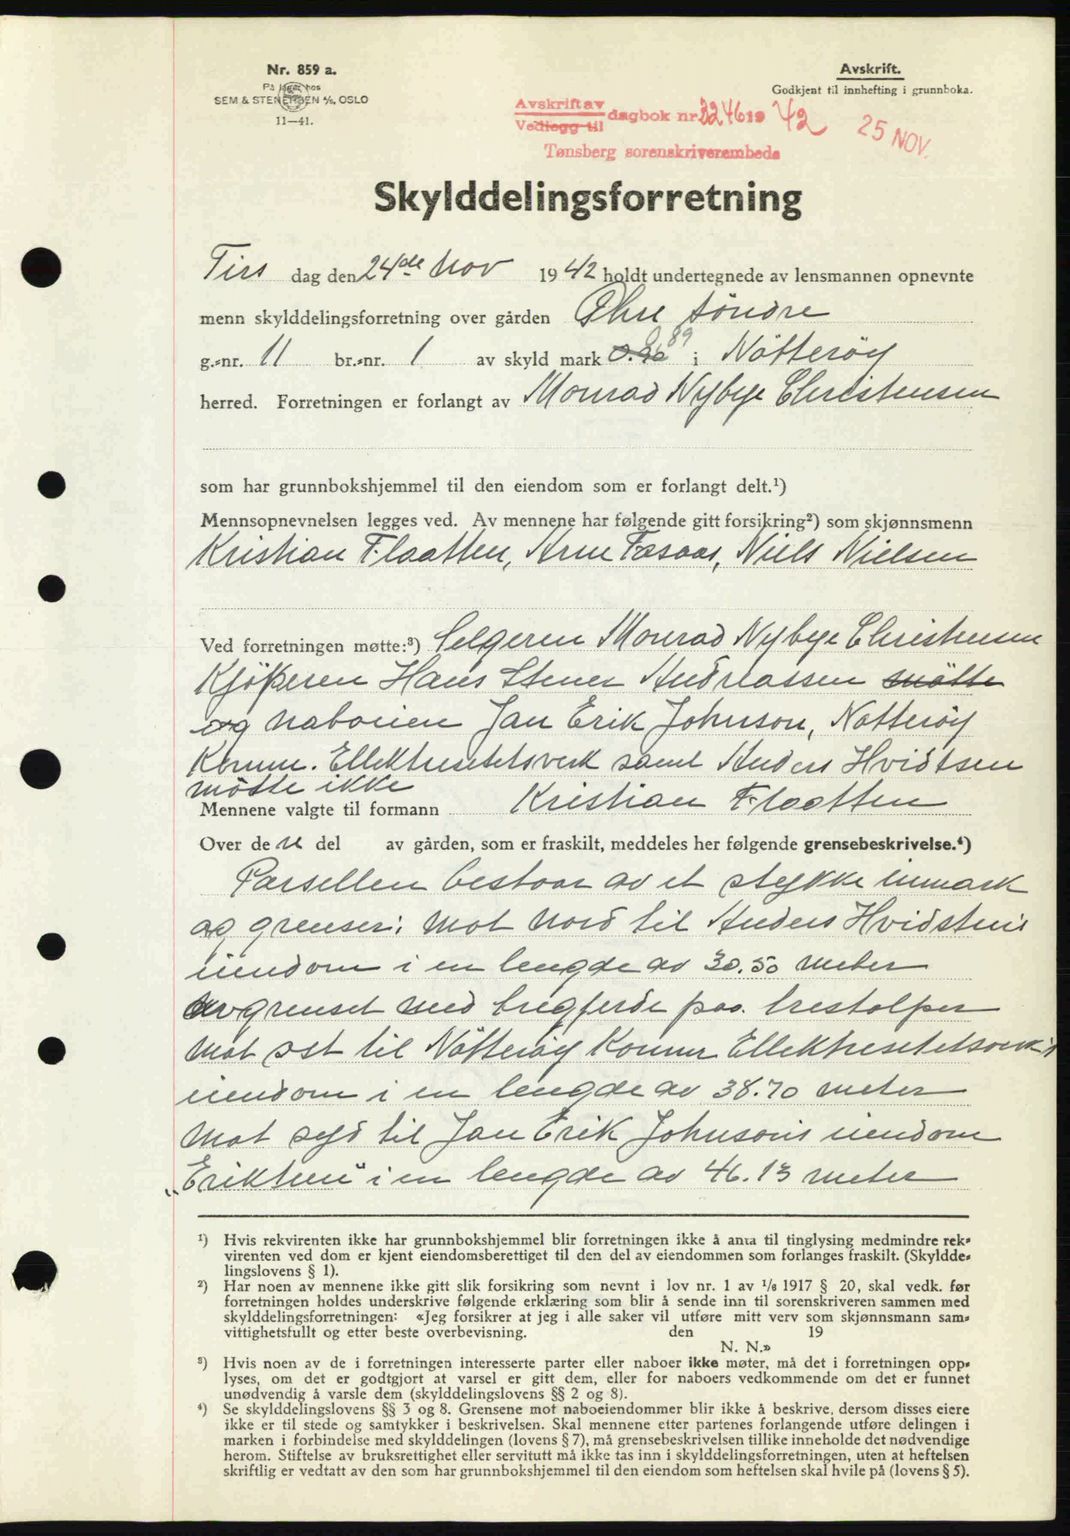 Nr. 859 a.
På lager hos
SEM & STENERSEN A/S, OSLO
11-41.
Avskrift.
Godkjent til innhefting i grunnboka.
Avskrift av
Vedlegg til
dagbok nr. 3246 19 42
25 NOV.
Tønsberg sorenskriverembede
Skylddelingsforretning
Tirs dag den 24de Nov 1942 holdt undertegnede av lensmannen opnevnte
menn skylddelingsforretning over gården Øhre söndre
g.-nr. 11 br.-nr. 1 av skyld mark 0.96 0.89 i Nötteröy
herred. Forretningen er forlangt av Monrad Nybye Christensen
som har grunnbokshjemmel til den eiendom som er forlangt delt.¹)
Mennsopnevnelsen legges ved. Av mennene har følgende gitt forsikring²) som skjønnsmenn
Kristian Flaatten, Arne Fosaas, Niels Nielsen
Ved forretningen møtte:³) Selgeren Monrad Nybye Christensen
Kjöperen Hans Stener Andreassen mötte
og naboene Jan Erik Johnson, Notteröy
Komm. Ellektresitetsverk samt Anders Hvidtsen
mötte ikke
Mennene valgte til formann Kristian Flaatten
Over den del av gården, som er fraskilt, meddeles her følgende grensebeskrivelse.⁴)
Parsellen bestaar av et stykke inmark
og grenser: Mot nord til Anders Hvidsten's
eiendom i en lengde av 30.50 meter
avgrenset med bregjerde paa trestolper
Mot øst til Nötteröy Komm Ellektresitetsverk's
eiendom i en lengde av 38.70 meter
Mot syd til Jan Erik Johnson's eiendom
„Eriktun" i en lengde av 46.13 meter
¹) Hvis rekvirenten ikke har grunnbokshjemmel blir forretningen ikke å anta til tinglysing medmindre rek-
virenten ved dom er kjent eiendomsberettiget til den del av eiendommen som forlanges fraskilt. (Skyldde-
lingslovens § 1).
²) Har noen av mennene ikke gitt slik forsikring som nevnt i lov nr. 1 av 1/6 1917 § 20, skal vedk. før
forretningen holdes underskrive følgende erklæring som blir å sende inn til sorenskriveren sammen med
skylddelingsforretningen: «Jeg forsikrer at jeg i alle saker vil utføre mitt verv som skjønnsmann sam-
vittighetsfullt og etter beste overbevisning. den 19
N. N.»
³) Hvis noen av de i forretningen interesserte parter eller naboer ikke møter, må det i forretningen opp-
lyses, om det er godtgjort at varsel er gitt dem, eller for naboers vedkommende om det er funnet
unødvendig å varsle dem (skylddelingslovens §§ 2 og 8).
⁴) Se skylddelingslovens §§ 3 og 8. Grensene mot naboeiendommer blir ikke å beskrive, dersom disses eiere
ikke er til stede og samtykker i beskrivelsen. Skal mennene etter partenes forlangende utføre delingen i
marken i forbindelse med skylddelingen (lovens § 7), må grensebeskrivelsen tillike inneholde det nødvendige
herom. Stiftelse av bruksrettighet eller servitutt må ikke tas inn i skylddelingsforretningen, uten at heftelsen
skriftlig er vedtatt av den som har grunnbokshjemmel til den eiendom som heftelsen skal hvile på (lovens § 5).